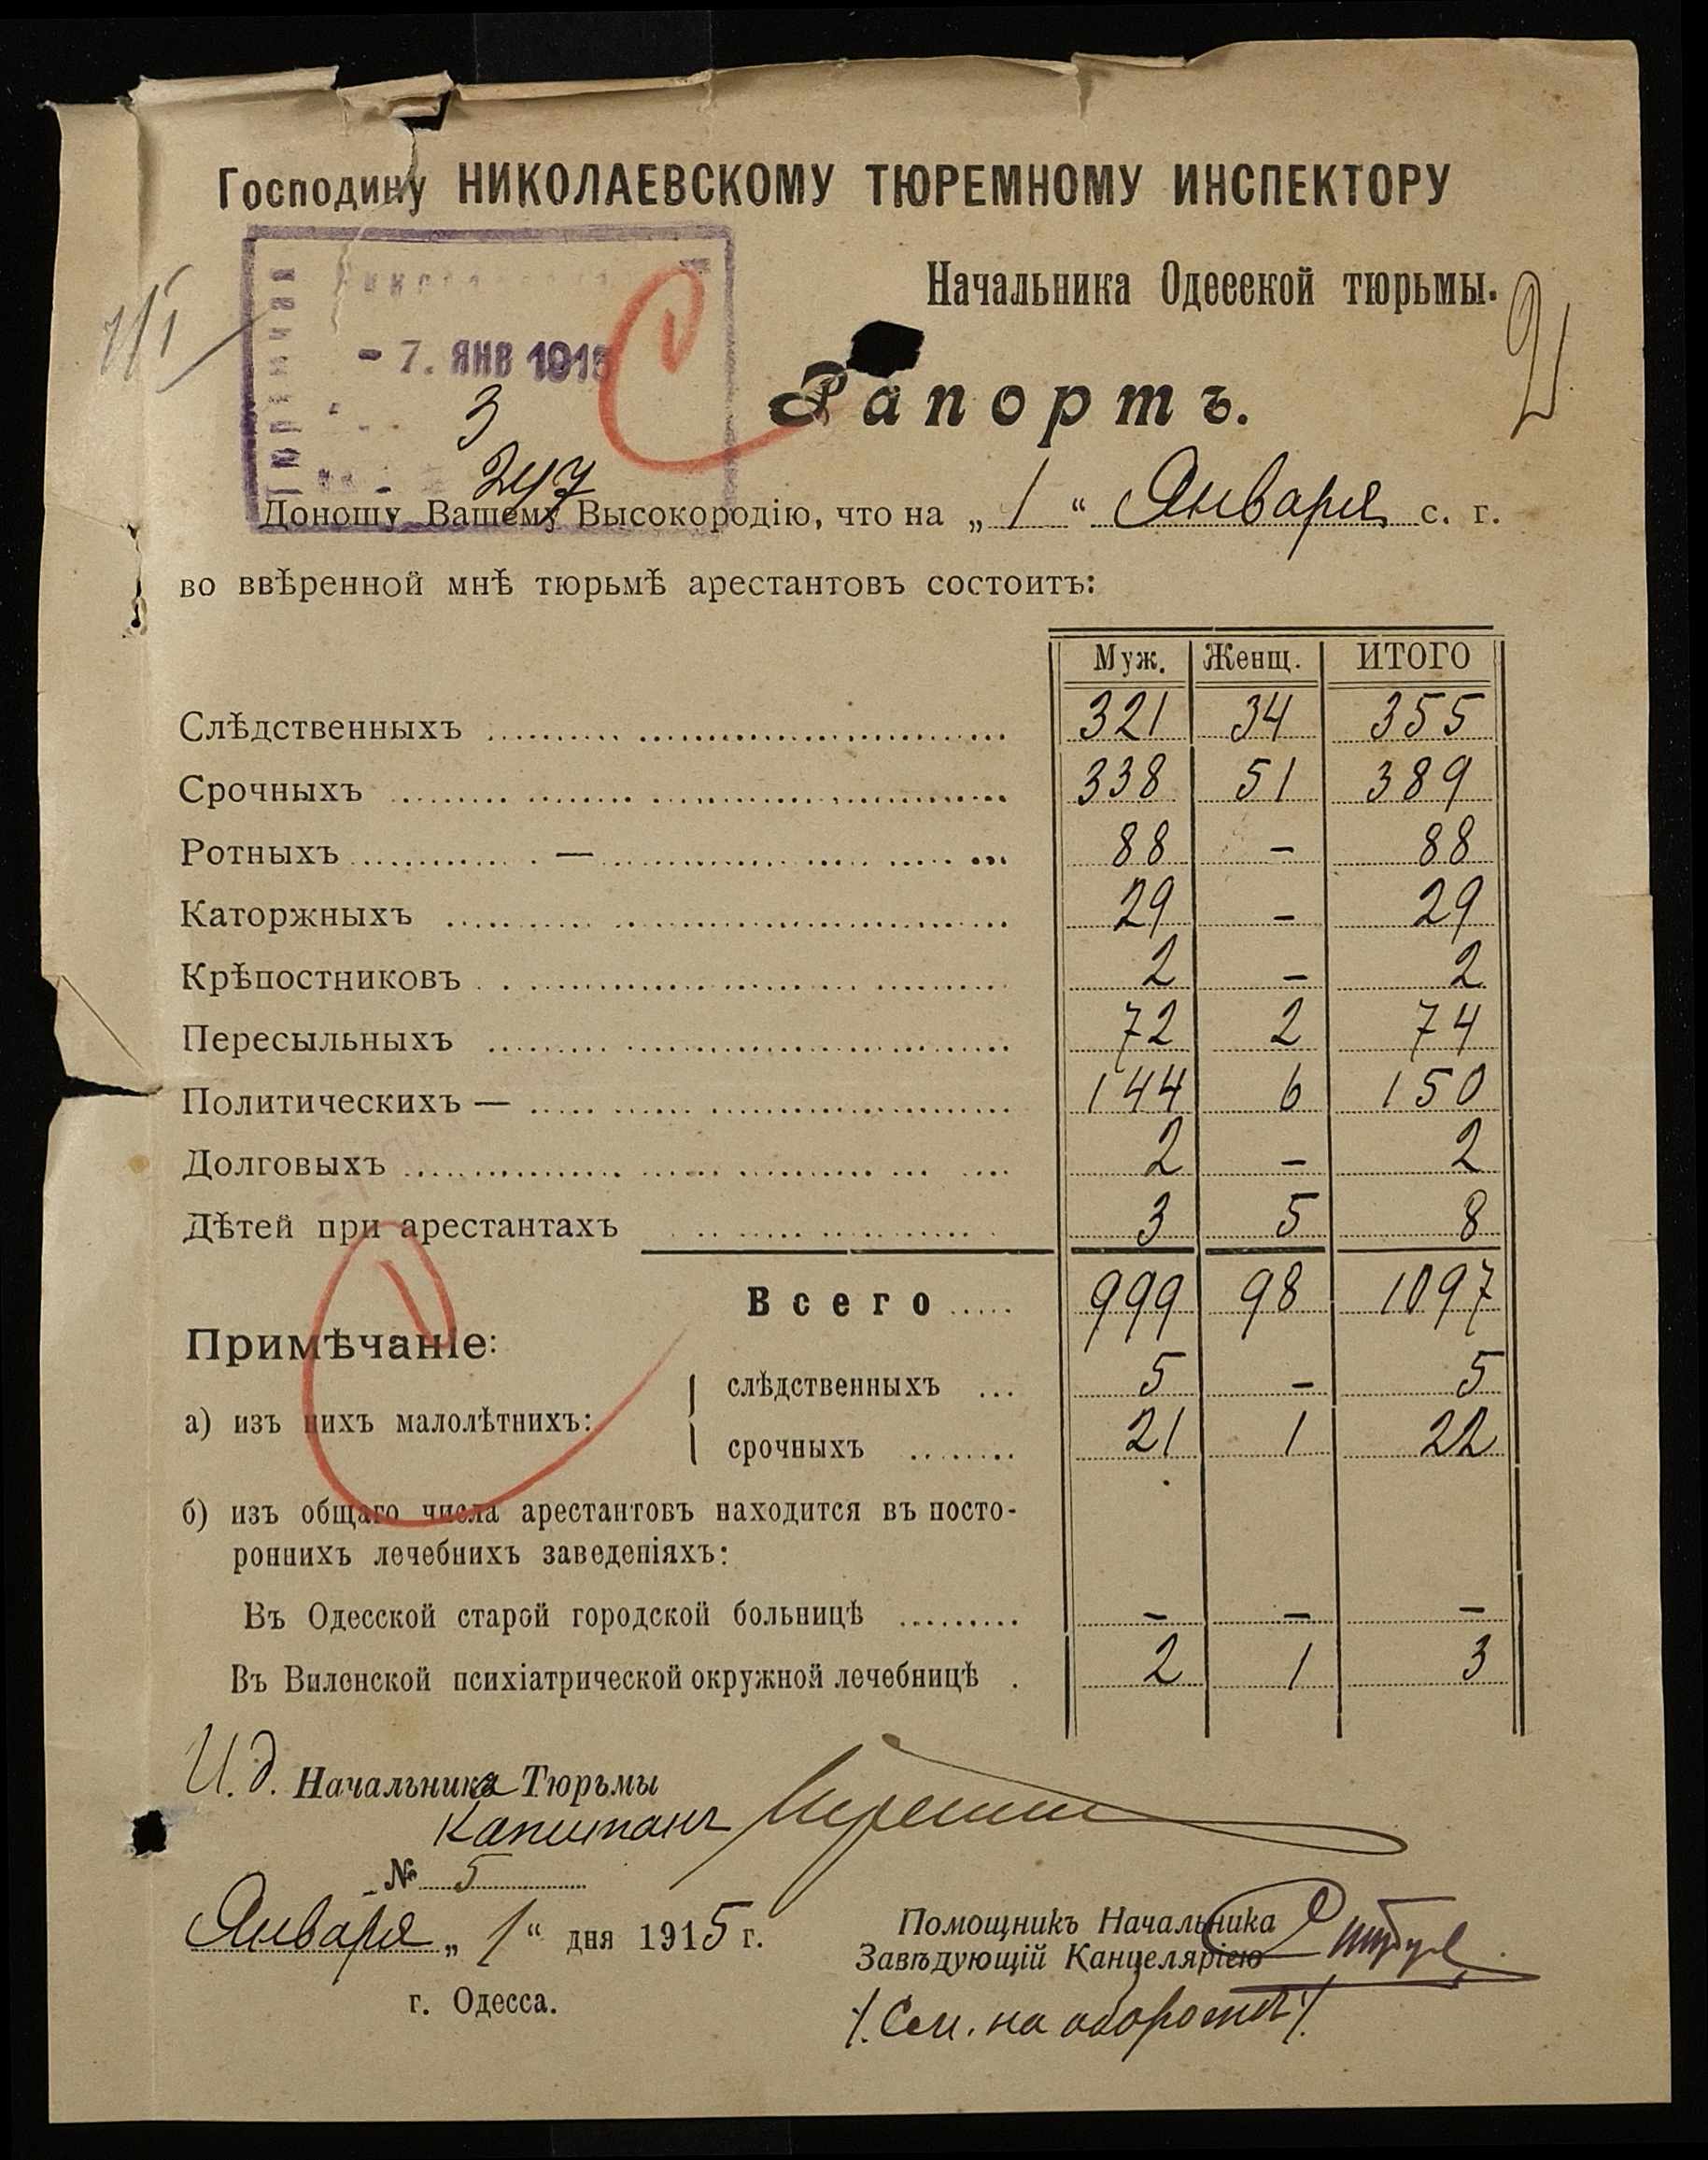 Господину НИКОЛАЕВСКОМУ ТЮРЕМНОМУ ИНСПЕКТОРУ
Начальника Одесской тюрьмы.
2
- 7. ЯНВ 1915
3
247
Рапортъ.
Доношу Вашему Высокородію, что на „ 1 “ Января с. г.
во ввѣренной мнѣ тюрьмѣ арестантовъ состоитъ:
Муж. Женщ. ИТОГО
Слѣдственныхъ 321 34 355
Срочныхъ 338 51 389
Ротныхъ — 88 - 88
Каторжныхъ 29 - 29
Крѣпостниковъ 2 - 2
Пересыльныхъ 72 2 74
Политическихъ — 144 6 150
Долговыхъ 2 - 2
Дѣтей при арестантахъ 3 5 8
Всего 999 98 1097
Примѣчаніе:
а) изъ нихъ малолѣтнихъ: слѣдственныхъ 5 - 5
срочныхъ 21 1 22
б) изъ общаго числа арестантовъ находится въ посто-
роннихъ лечебнихъ заведеніяхъ:
Въ Одесской старой городской больницѣ - - -
Въ Виленской психіатрической окружной лечебницѣ 2 1 3
И.д. Начальника Тюрьмы
Капитанъ
№ 5
Января „ 1 “ дня 1915 г.
г. Одесса.
Помощникъ Начальника
Завѣдующій Канцеляріею
/. См. на оборотѣ /.